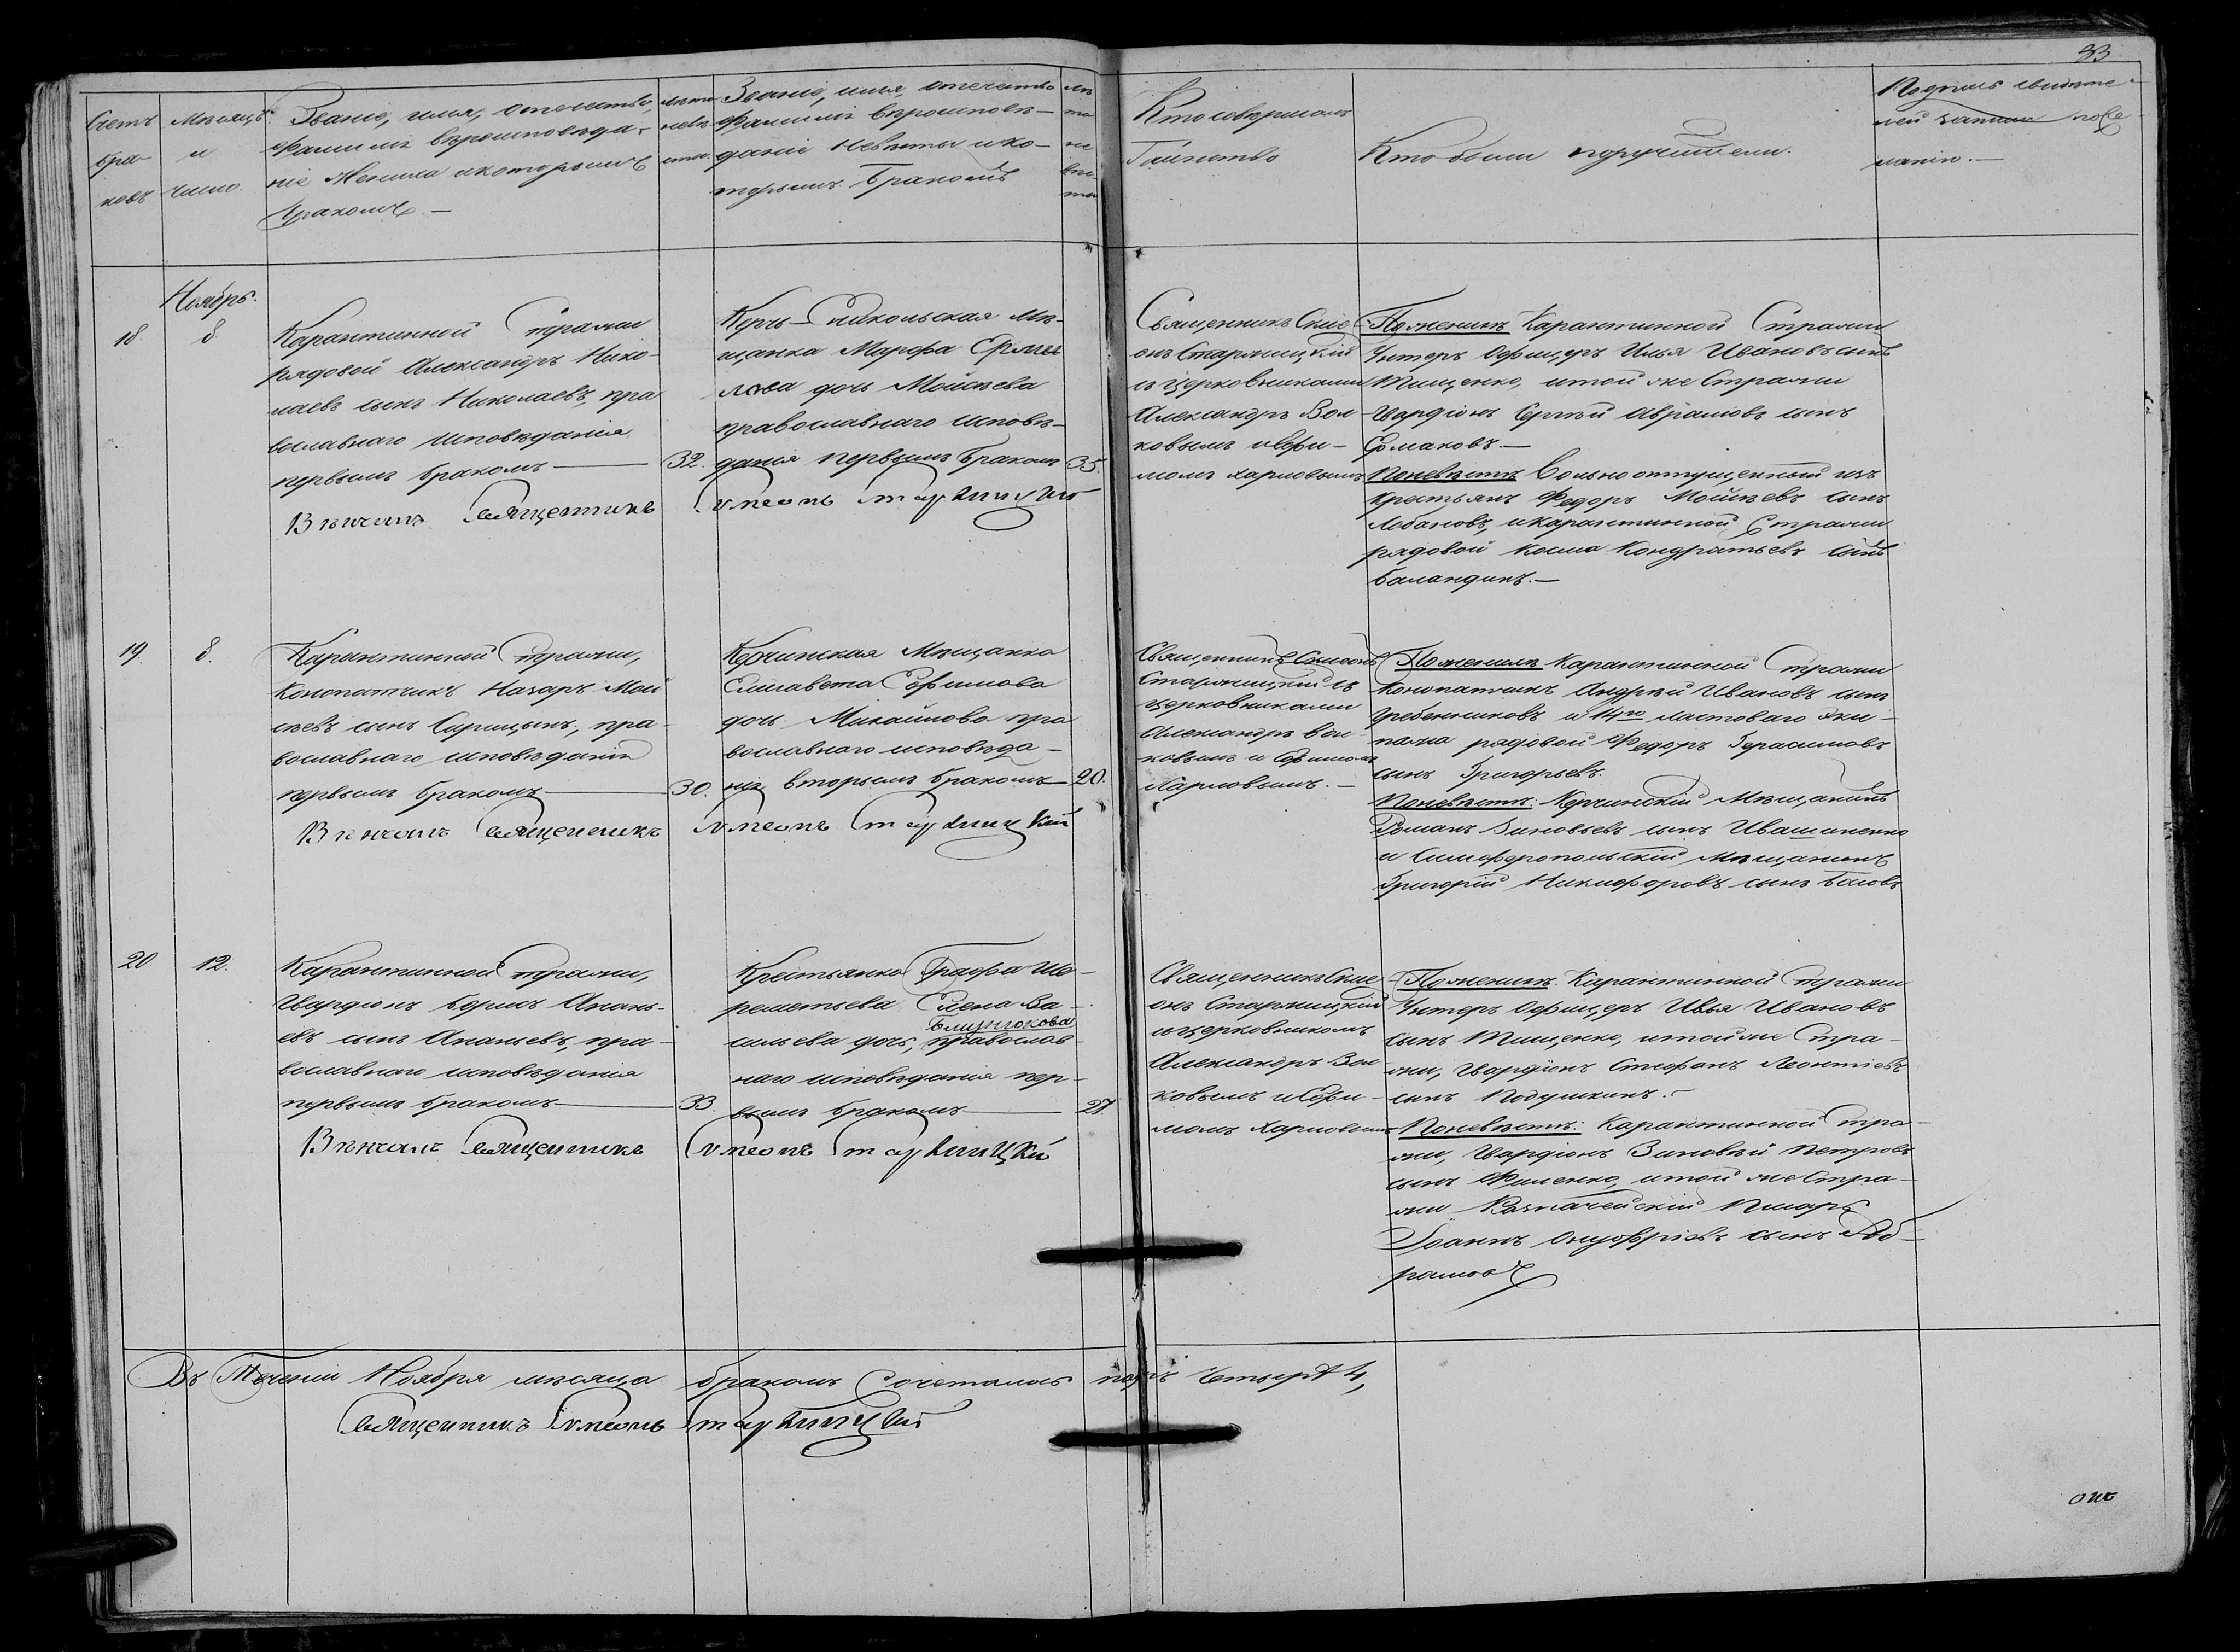 33
Счетъ бра- ковъ
Мѣсяцъ и число.
Званіе, имя, отечество,
фамилія вѣроисповѣда-
ніе Жениха и которымъ
бракомъ. —
лѣта
жени-
ха.
Званіе, имя, отечество
фамилія вѣроисповѣ-
даніе невѣсты и ко-
торымъ бракомъ
лѣ
та
не
вѣс-
ты
Кто совершалъ
Таинство
Кто были поручители.
Подпись свидѣте-
лей записи по же-
ланію. —
Ноябрь.
18.
8
Карантинной Стражи
рядовой Александръ Нико-
лаевъ сынъ Николаевъ, пра
вославнаго исповѣданія
первымъ бракомъ —
32.
Вѣнчалъ Священникъ Симеонъ Старжицкій
Керчь-Еникольская Мѣ-
щанка Марфа
лова дочь Мойсѣева
православнаго исповѣ-
данія первымъ бракомъ
35.
Священникъ Симе
онъ Старжицкій
съ церковниками
Александръ Вол-
ковымъ и Ефи-
момъ Харловымъ
По женихѣ Карантинной Стражи
Унтеръ Офицеръ Илья Ивановъ сынъ
Тищенко, и той же Стражи
Гвардіонъ Сергѣй Абрамовъ сынъ
Ермаковъ. —
По невѣстѣ Вольноотпущенный изъ
крестьянъ Федоръ Мойсѣевъ сынъ
Лобановъ, и карантинной Стражи
рядовой Косма Кондратьевъ сынъ
Баландинъ. —
19.
8.
Карантинной Стражи,
Конопатчикъ Назаръ Мой
сѣевъ сынъ Сарицынъ, пра-
вославнаго исповѣданія
первымъ бракомъ —
30.
Вѣнчалъ Священникъ Симеонъ Старжицкій
Керчинская Мѣщанка
Елисавета Ефимова
дочь Михайлова пра
вославнаго исповѣда-
нія вторымъ бракомъ —
20.
Священникъ Симеонъ
Старжицкій съ
церковниками
Александръ Вол-
ковымъ и Ефимомъ
Харловымъ. —
По женихѣ Карантинной Стражи
Конопатчикъ Андрей Ивановъ сынъ
Гребенниковъ и 14го ластоваго эки-
пажа рядовой Федоръ Герасимовъ
сынъ Григорьевъ.
По невѣстѣ: Керчинскій Мѣщанинъ
Романъ Зиновьевъ сынъ Ивашиненко
и Симферопольскій Мѣщанинъ
Григорій Никифоровъ сынъ Басовъ
20
12.
Карантинной Стражи,
Гвардіонъ Борисъ Анань-
евъ сынъ Ананьевъ, пра-
вославнаго исповѣданія
первымъ бракомъ —
33.
Вѣнчалъ Священникъ Симеонъ Старжицкій
Крестьянка Графа Ше-
реметьева Елена Ва-
Близнюкова
сильева дочь, православ-
наго исповѣданія пер-
вымъ бракомъ —
27.
Священникъ Симе
онъ Старжицкій
съ церковникомъ
Александръ Вол-
ковымъ и Ефи-
момъ Харловымъ
По женихѣ Карантинной Стражи
Унтеръ Офицеръ Илья Ивановъ
сынъ Тищенко, и той же Стра-
жи, Гвардіонъ Стефанъ Леонтіевъ
сынъ Подушкинъ. —
По невѣстѣ: Карантинной Стра-
жи, Гвардіонъ Зиновѣй Петровъ
сынъ Филенко, и той же Стра-
жи Казначейскій Писарь
Іоаннъ Онуфріевъ сынъ Аб-
рамовъ
Въ Теченіи Ноября мѣсяца бракомъ Сочеталось паръ Четыре 4,
Священникъ Симеонъ Старжицкій